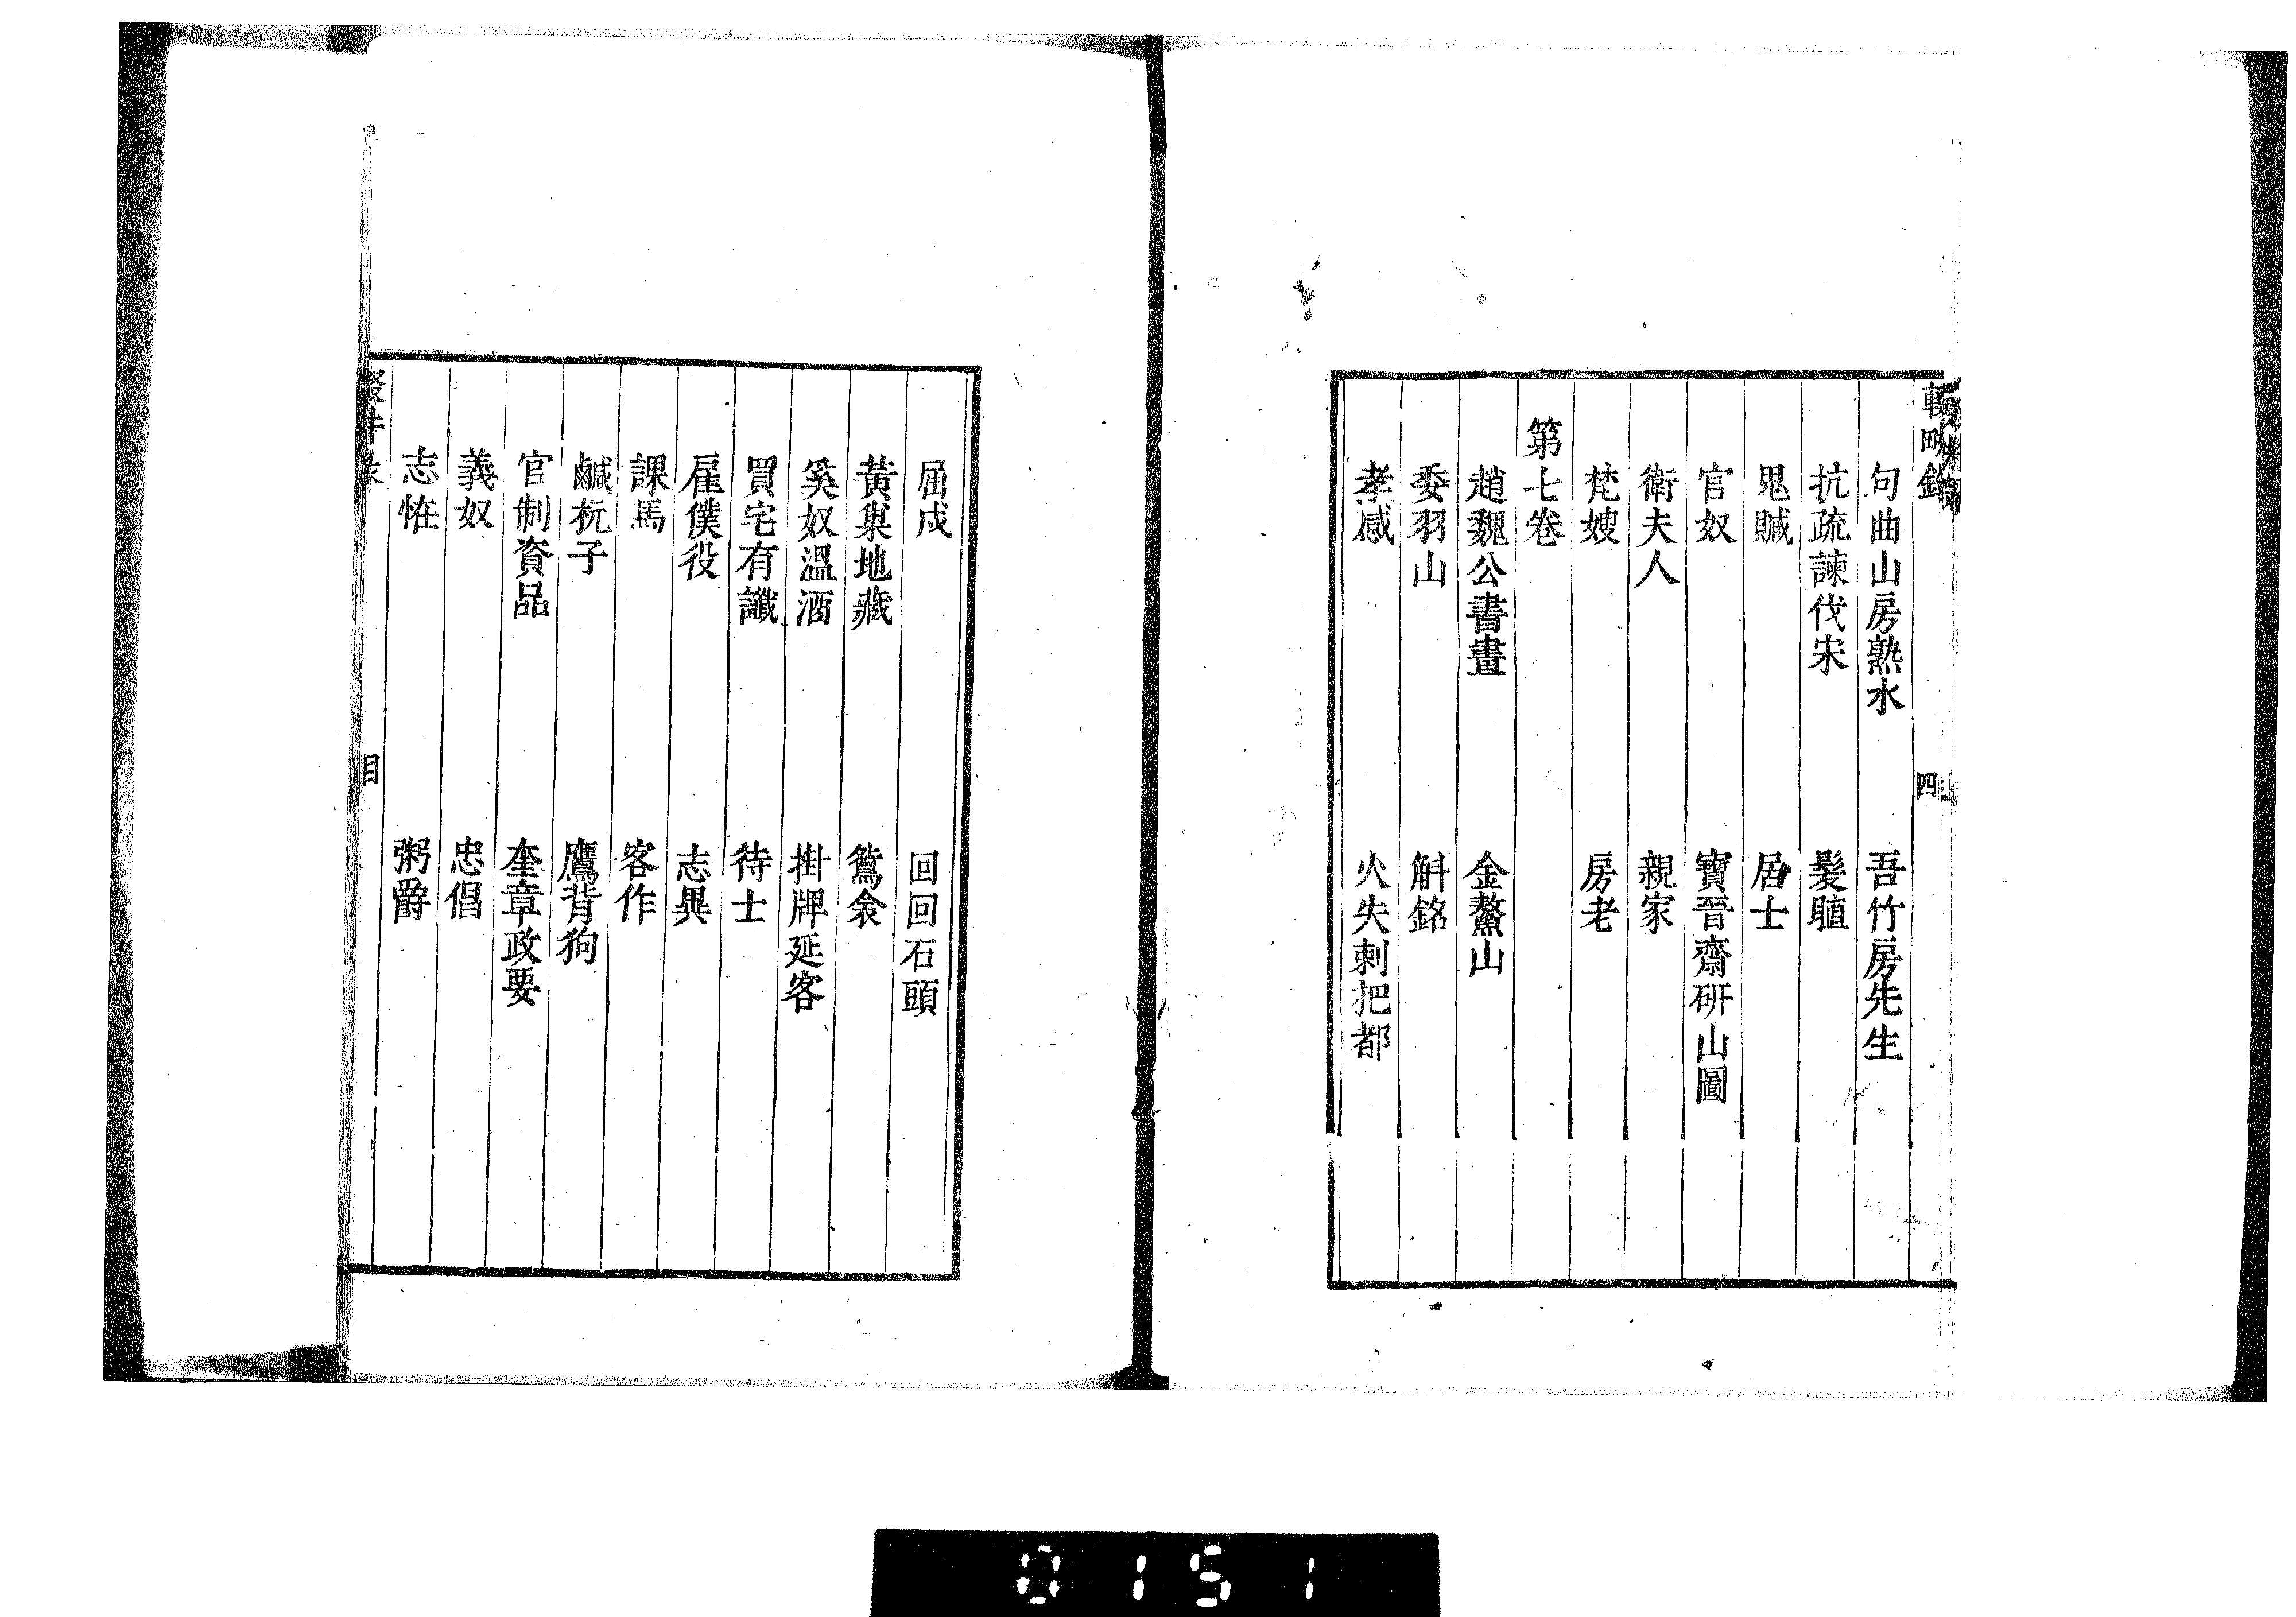 輟畊錄 四
句曲山房熟水 吾竹房先生
抗疏諫伐宋 髮𥄂
鬼贓 居士
官奴 寶晉齋研山圖
衛夫人 親家
梵嫂 房老
第七卷
趙魏公書畫 金鰲山
委羽山 斛銘
孝感 火失刺把都
屈戍 回回石頭
黃巢地藏 鴛衾
奚奴溫酒 掛牌延客
買宅有讖 待士
雇僕役 志異
課馬 客作
鹹杬子 鷹背狗
官制資品 奎章政要
義奴 忠倡
志恠 粥爵
目
0151